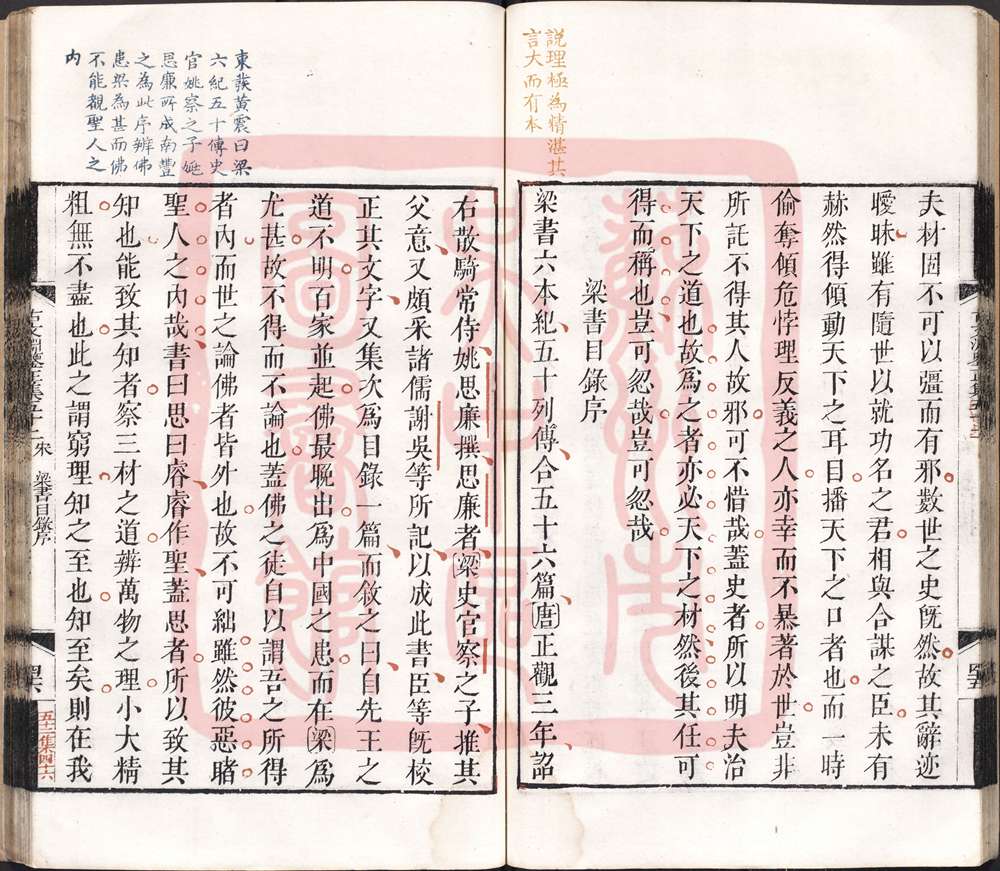 說理極為精湛其
言大而有本
夫材固不可以彊而有邪數世之史旣然故其辭迹
曖昧雖有隨世以就功名之君相與合謀之臣未有
赫然得傾動天下之耳目播天下之口者也而一時
偷奪傾危悖理反義之人亦幸而不暴著於世豈非
所託不得其人故邪可不惜哉蓋史者所以明夫治
天下之道也故爲之者亦必天下之材然後其任可
得而稱也豈可忽哉豈可忽哉
梁書目錄序
梁書六本紀五十列傳合五十六篇唐正觀三年詔
東發黃震曰梁
六紀五十傳史
官姚察之子姚
思廉所成南豐
之為此序辨佛
患梁為甚而佛
不能觀聖人之
内
右散騎常侍姚思廉撰思廉者梁史官察之子推其
父意又頗采諸儒謝吳等所記以成此書臣等旣校
正其文字又集次爲目錄一篇而敘之曰自先王之
道不明百家並起佛最晚出爲中國之患而在梁爲
尤甚故不得而不論也蓋佛之徒自以謂吾之所得
者內而世之論佛者皆外也故不可絀雖然彼惡睹
聖人之內哉書曰思曰睿睿作聖蓋思者所以致其
知也能致其知者察三材之道辨萬物之理小大精
粗無不盡也此之謂窮理知之至也知至矣則在我
宋 梁書目錄序